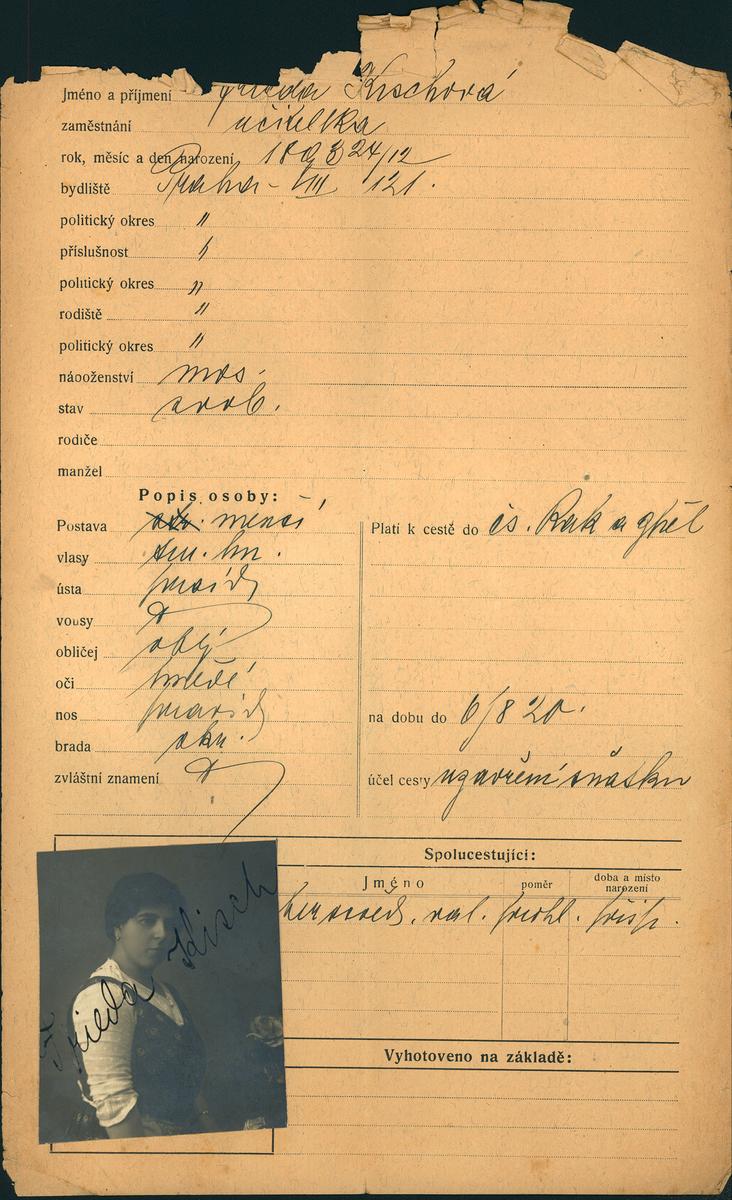 Jméno a příjmení Frieda Kischová
zaměstnání učitelka
rok, měsíc a den narození 1893 24/12
bydliště Praha - VIII 121.
politický okres "
příslušnost "
politický okres "
rodiště "
politický okres "
náboženství mos.
stav svob.
rodiče
manžel
Popis osoby:
Postava menší
vlasy tm. hn.
ústa pravid
vousy
obličej oblý
oči hnědé
nos pravid
brada okr.
zvláštní znamení
Platí k cestě do čs. Rak a zpět
na dobu do 6/8 20.
účel cesty uzavření sňatku
Spolucestující:
Jméno poměr doba a místo narození
. přihl. přísl.
Vyhotoveno na základě:
Frieda Kisch